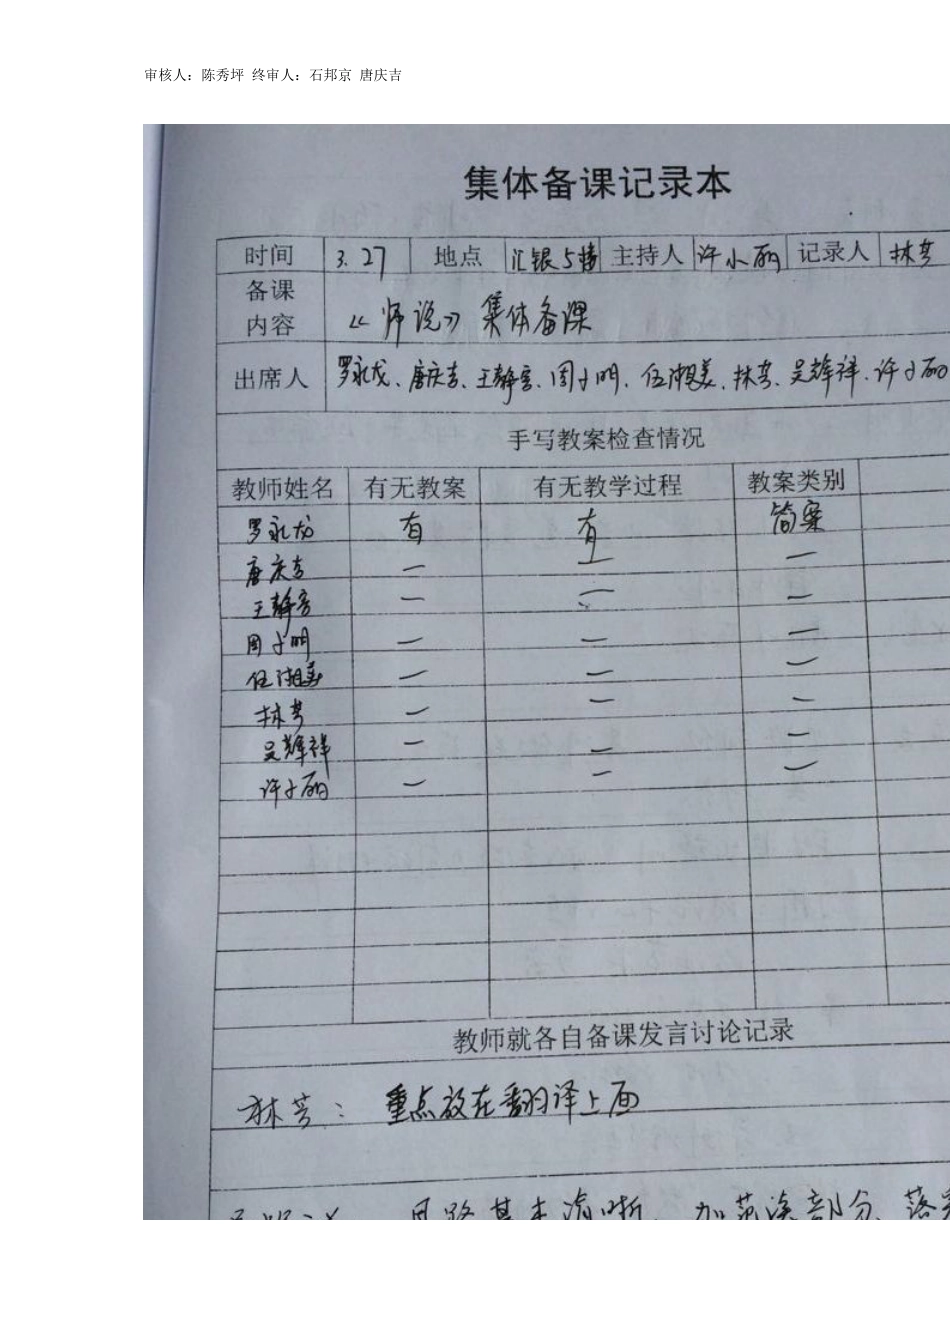 审核人：陈秀坪 终审人：石邦京 唐庆吉
集体备课记录本
时间 3.27 地点 汇银5楼 主持人 许小丽 记录人 林芳
备课内容 《师说》集体备课
出席人 罗永龙、唐庆吉、王静、周小明、伍湘美、林芳、吴辉祥、许小丽
手写教案检查情况
教师姓名 有无教案 有无教学过程 教案类别
罗永龙 有 有 简案
唐庆吉 — — —
王静 — — —
周小明 — — —
伍湘美 — — —
林芳 — — —
吴辉祥 — — —
许小丽 — — —
教师就各自备课发言讨论记录
林芳： 重点放在翻译上面
思路基本清晰、加 部分、落实